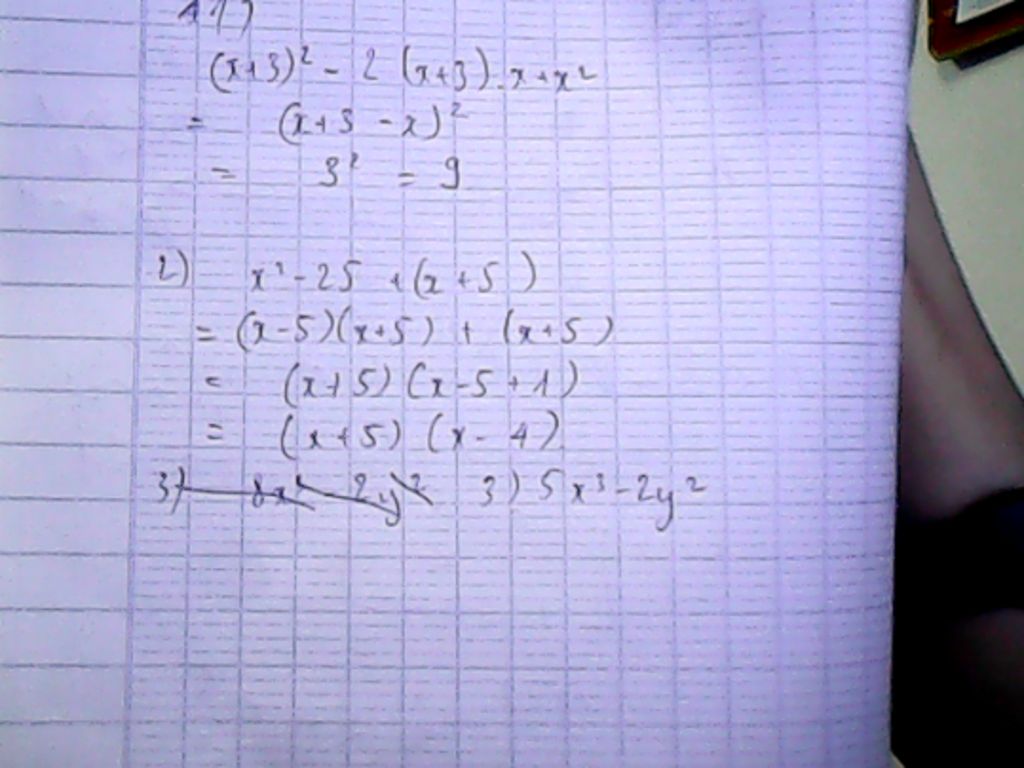 11)
(x+3)² - 2 (x+3) . x + x²
= (x+3 - x)²
= 3² = 9
2) x² - 25 + (x + 5)
= (x-5)(x+5) + (x+5)
= (x+5) (x-5+1)
= (x+5) (x - 4)
3) 8x² 2y² 3) 5x³ - 2y²